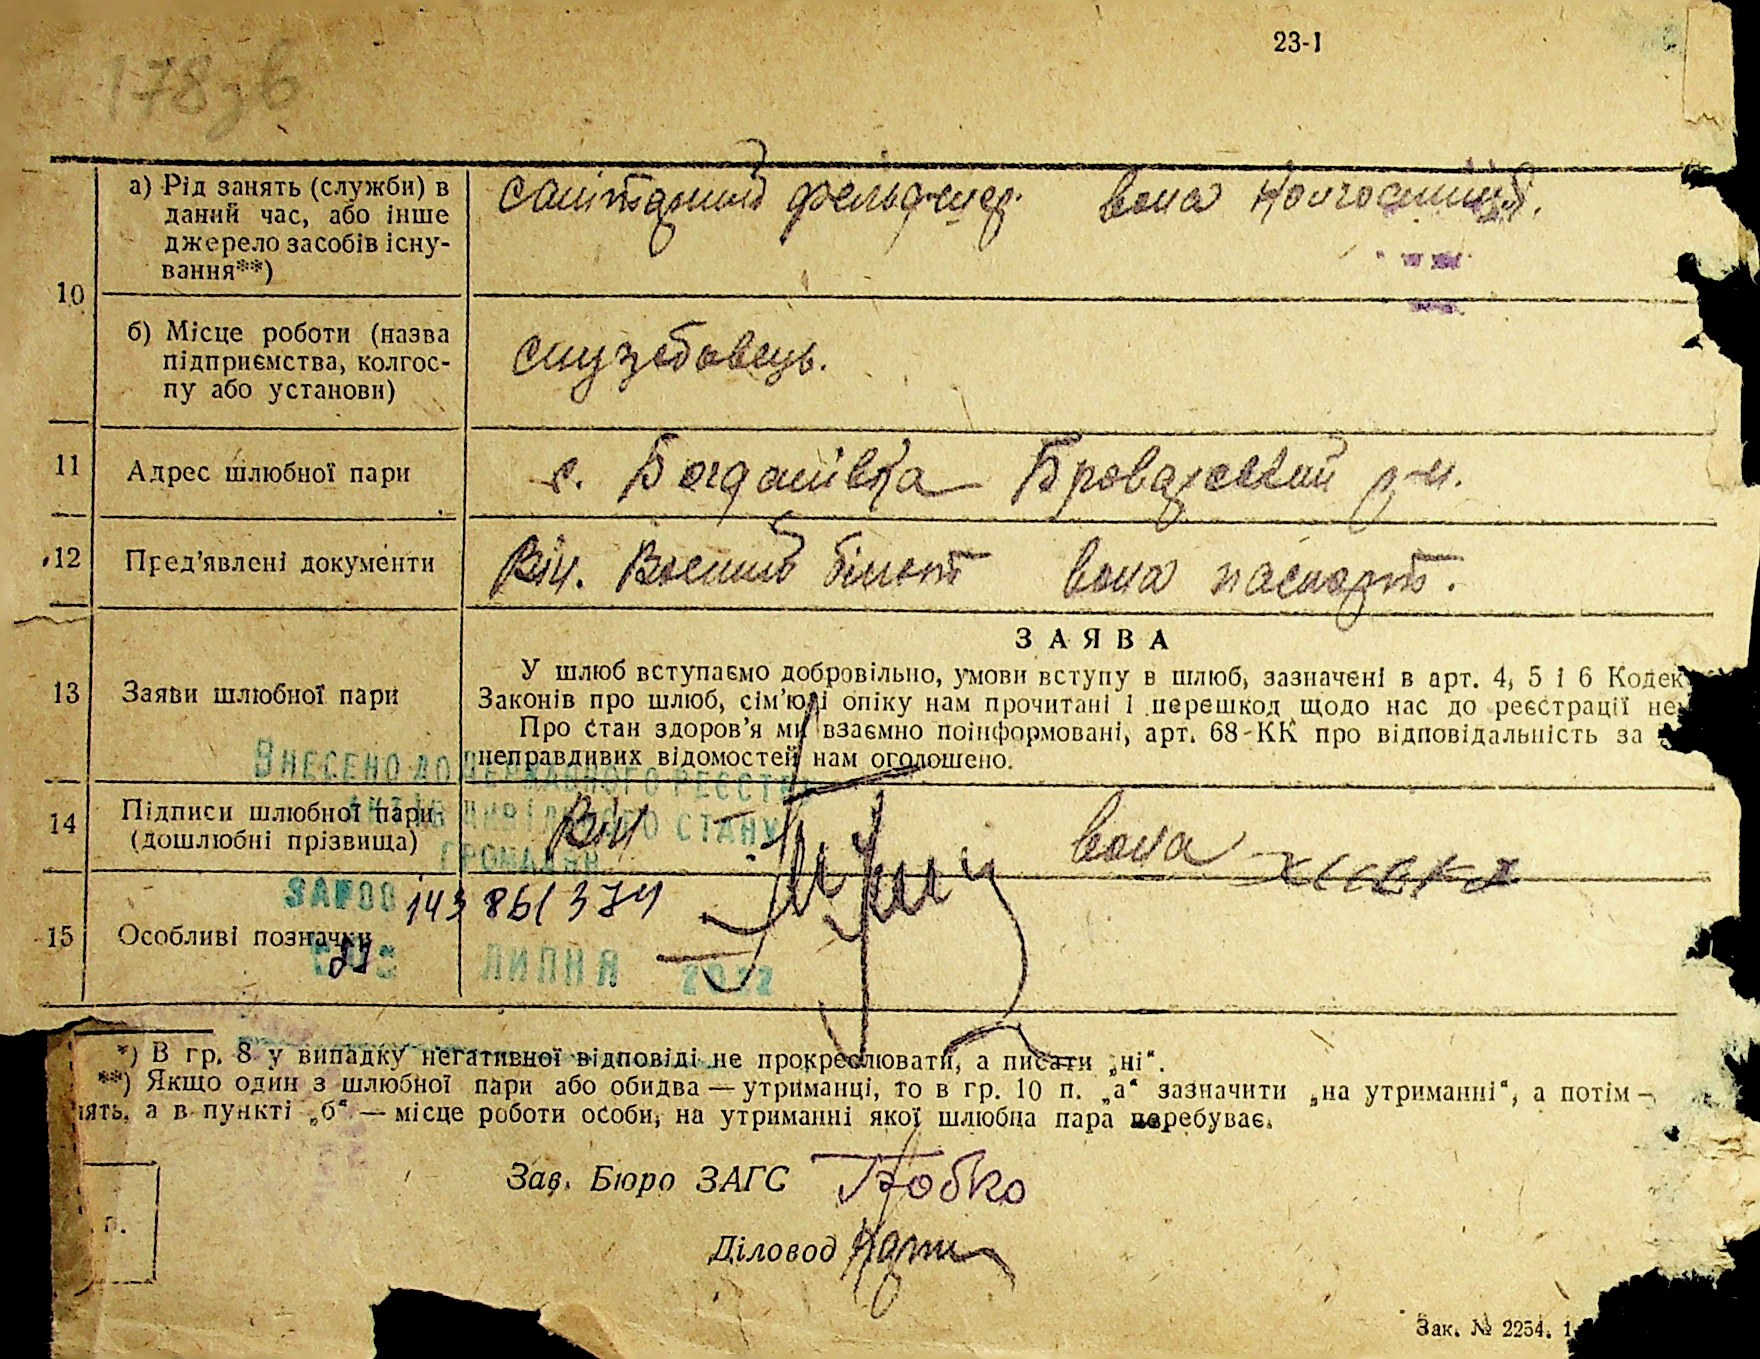 23-1
178зв
10
а) Рід занять (служби) в
даний час, або інше
джерело засобів існу-
вання**)
санітарний фельдшер. вона колгоспниця.
б) Місце роботи (назва
підприємства, колгос-
пу або установи)
службовець.
11 Адрес шлюбної пари с. Богданівка Броварський р-н.
12 Пред'явлені документи Він. Военний білет вона паспорт.
13 Заяви шлюбної пари
ЗАЯВА
У шлюб вступаємо добровільно, умови вступу в шлюб, зазначені в арт. 4, 5 і 6 Кодек
Законів про шлюб, сім'ю і опіку нам прочитані і перешкод щодо нас до реєстрації не
Про стан здоров'я ми взаємно поінформовані, арт. 68-КК про відповідальність за
неправдивих відомостей нам оголошено.
ВНЕСЕНО ДО ДЕРЖАВНОГО РЕЄСТРУ
АКТІВ ЦИВІЛЬНОГО СТАНУ
ГРОМАДЯН
14 Підписи шлюбної пари
(дошлюбні прізвища)
Він вона
15 Особливі позначки
ЛИПНЯ 2022
*) В гр. 8 у випадку негативної відповіді не прокреслювати, а писати „ні“.
**) Якщо один з шлюбної пари або обидва — утриманці, то в гр. 10 п. „а“ зазначити „на утриманні“, а потім —
ять, а в пункті „б“ — місце роботи особи, на утриманні якої шлюбна пара перебуває.
Зав. Бюро ЗАГС Бобко
Діловод
п.
Зак. № 2254. 1